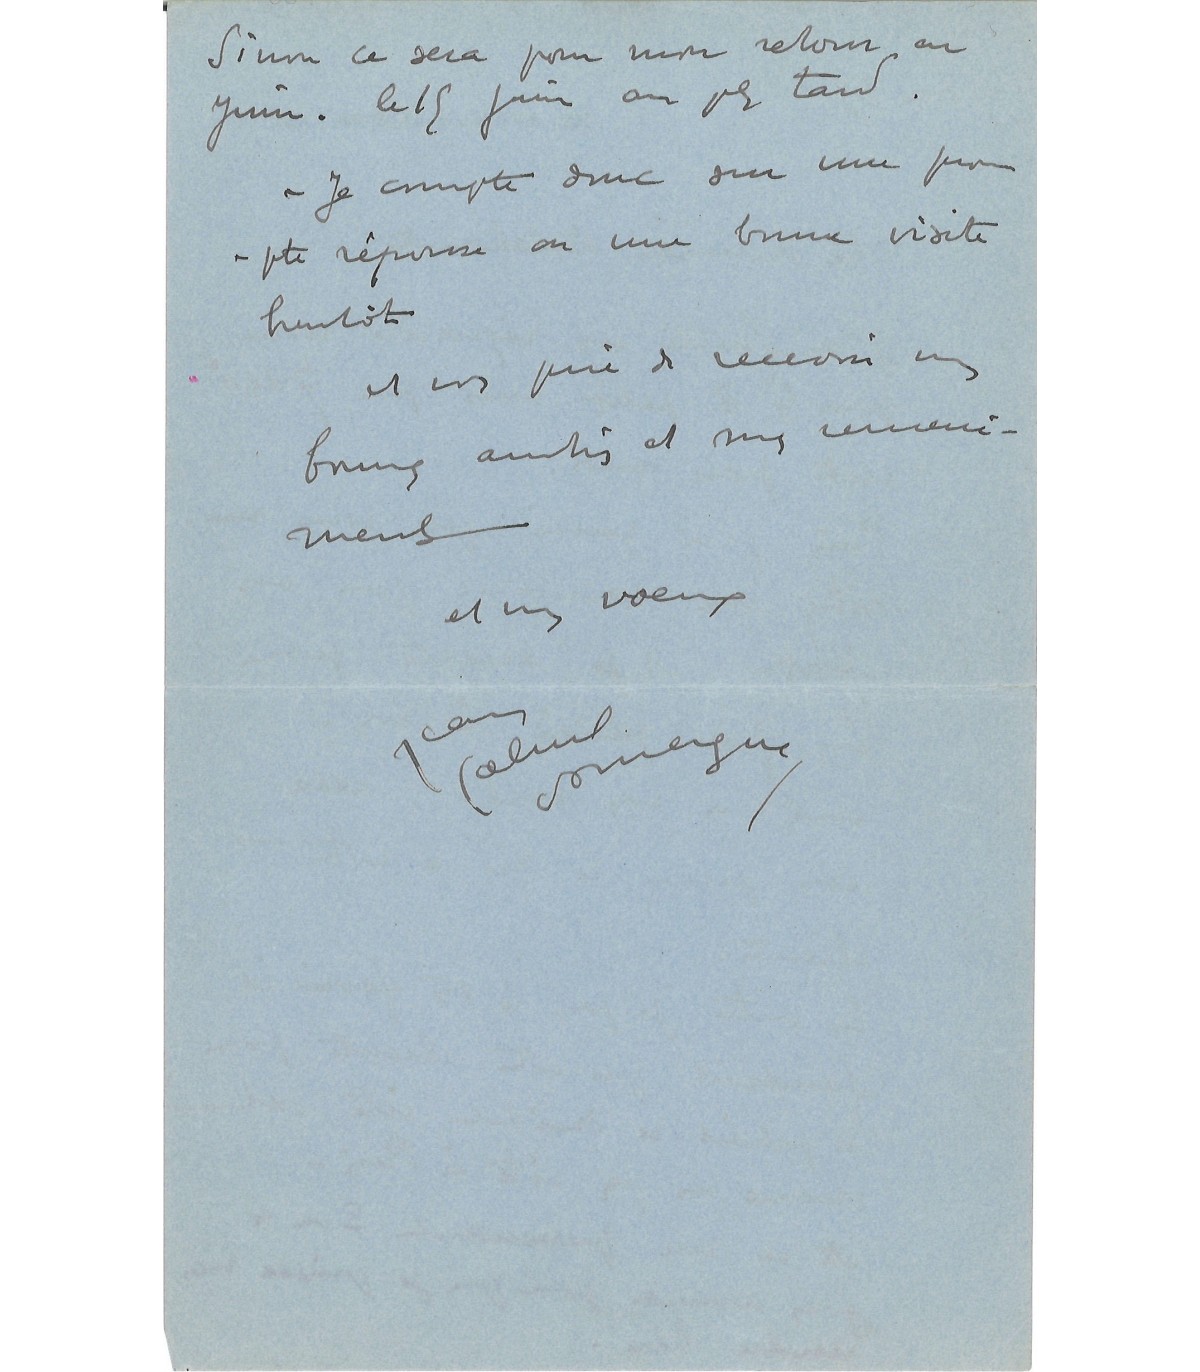 Sinon ce sera pour mon retour en
Juin. le 15 juin au plus tard.
- Je compte donc sur une prom
- pte réponse ou une bonne visite
bientôt
et vous prie de recevoir mes
bonnes amitiés et mes remerci-
ments
et mes voeux
Jean
Gabriel
Domergue